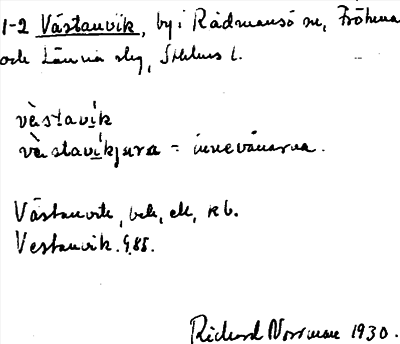 1-2 Västanvik, by i Rådmansö sn, Fröhuna
och Länna slg, Sthlms l.
vèstavík
vèstavíkjara = innevånarna.
Västanvik, bek, ek, kb.
Vestanvik. G.85.
Richard Norrman 1930.